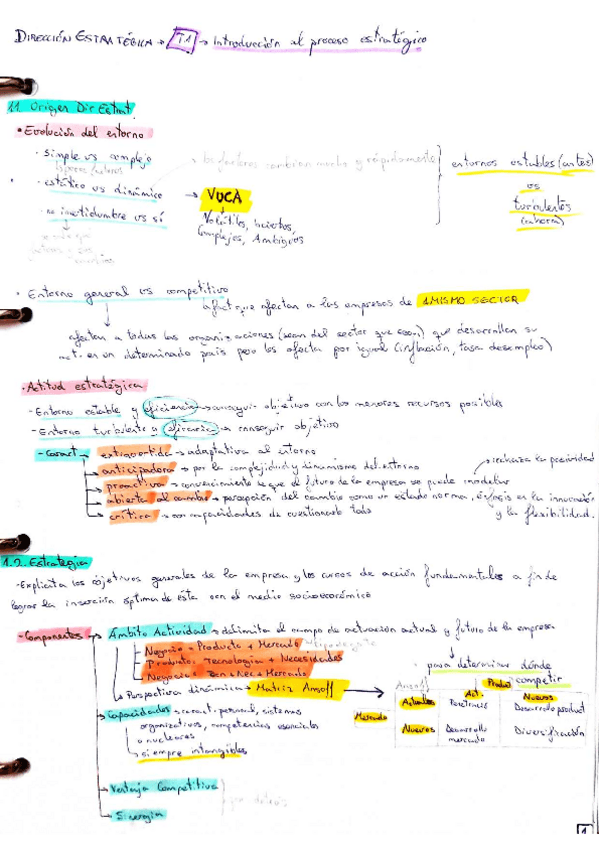 DIRECCIÓN ESTRATÉGICA → T.1 → Introducción al proceso estratégico
1.1. Origen Dir Estrat.
• Evolución del entorno
· Simple vs complejo
· estático vs dinámico → VUCA
· no incertidumbre vs sí
los factores cambian mucho y rápidamente
Volátiles, inciertos,
Complejos, Ambiguos
entornos estables (antes)
vs
turbulentos
(ahora)
· Entorno general vs competitivo
que afectan a las empresas de 1 MISMO SECTOR
afectan a todas las organizaciones (sean del sector que sean) que desarrollan su
act. en un determinado país pero los afecta por igual (inflación, tasa desempleo)
· Actitud estratégica
- Entorno estable y eficiencia → conseguir objetivo con los menores recursos posibles
- Entorno turbulento y eficacia → conseguir objetivo
- Caract. → extravertida → adaptativa al entorno
→ anticipadora → por la complejidad y dinamismo del entorno
→ proactiva → convencimiento de que el futuro de la empresa se puede modelar
→ rechaza la pasividad
→ abierta al cambio → percepción del cambio como un estado norma, énfasis en la innovación
y la flexibilidad.
→ crítica → con capacidades de cuestionarlo todo
1.2. Estrategia
- Explicita los objetivos generales de la empresa y los cursos de acción fundamentales a fin de
lograr la inserción óptima de ésta en el medio socioeconómico
- Componentes → Ámbito Actividad → delimita el campo de actuación actual y futuro de la empresa
Negocio = Producto + Mercado
Producto = Tecnología + Necesidades
Negocio = Tecn + Nec + Mercado
→ para determinar dónde
competir
→ Perspectiva dinámica → Matriz Ansoff →
Ansoff
Product
Act. Nuevos
Mercado
Actuales Penetración Desarrollo product
Nuevos Desarrollo mercado Diversificación
→ Capacidades = caract. personal, sistemas
organizativos, competencias esenciales
o nucleares
→ siempre intangibles
→ Ventaja Competitiva
→ Sinergia
1